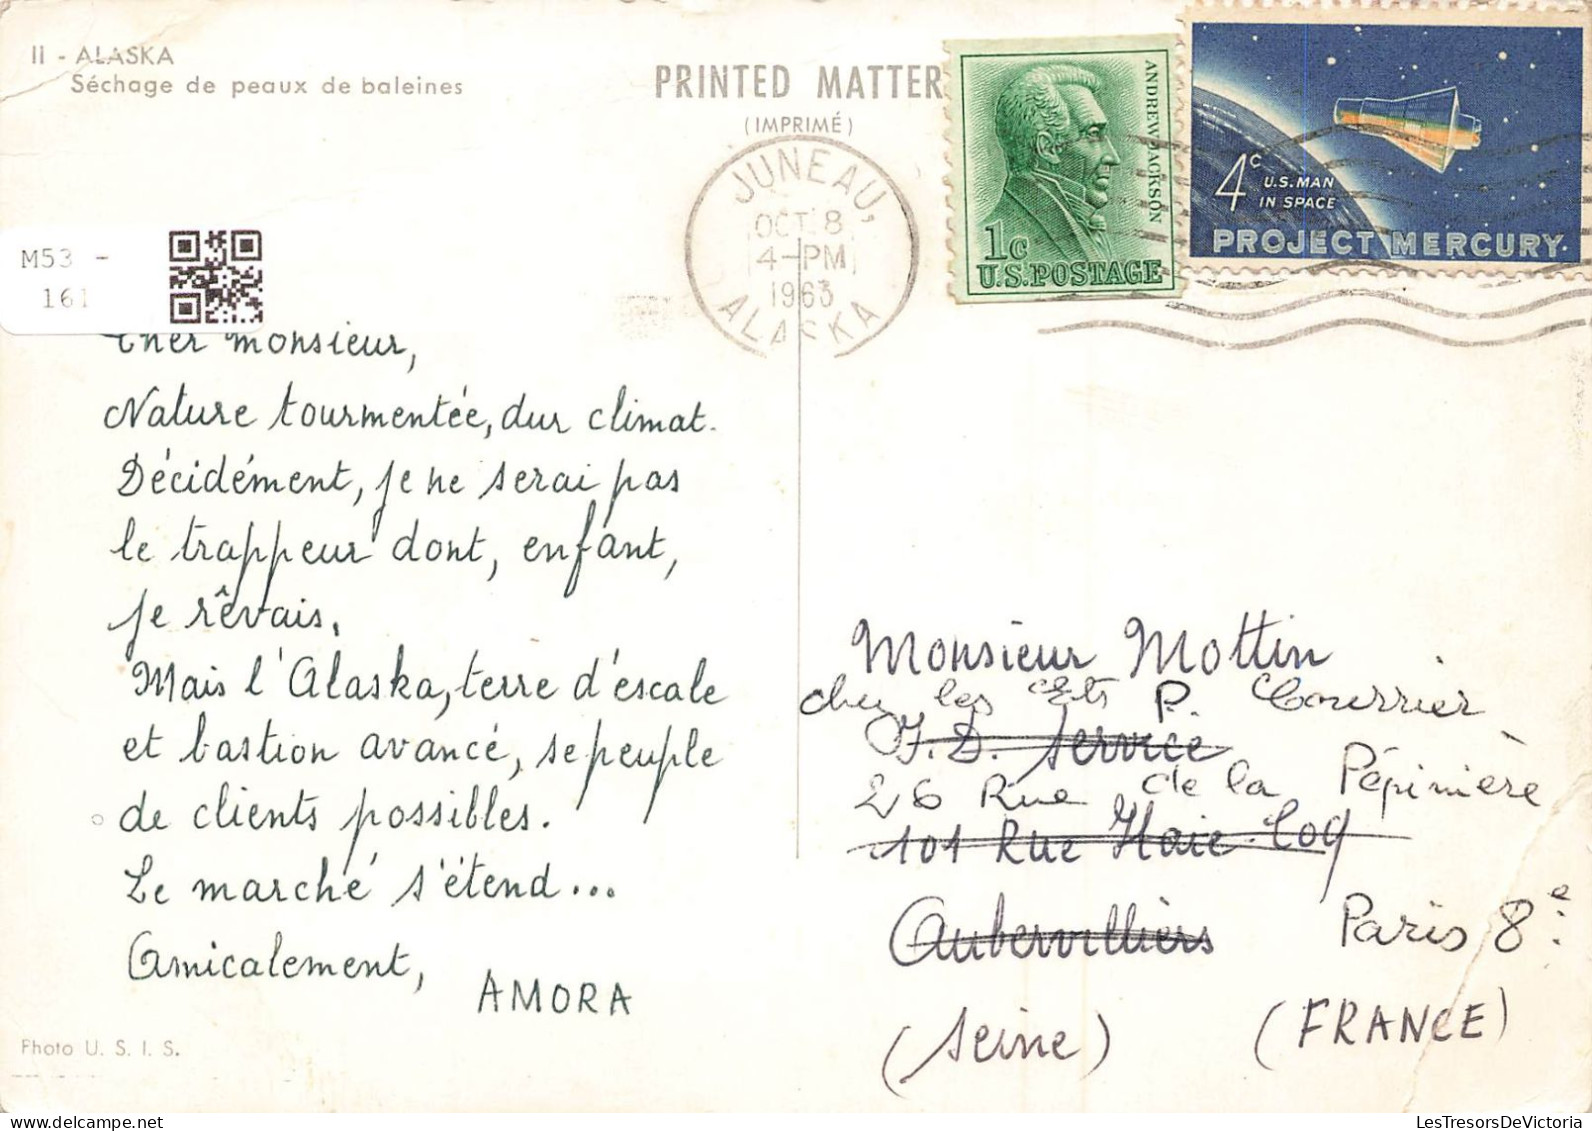 II - ALASKA
Séchage de peaux de baleines
PRINTED MATTER
(IMPRIMÉ)
JUNEAU,
OCT 8
4-PM
1963
ALASKA
ANDREW JACKSON
1c
U.S. POSTAGE
4c
U.S. MAN
IN SPACE
PROJECT MERCURY
M53 -
161
Cher monsieur,
Nature tourmentée, dur climat.
Décidément, je ne serai pas
le trappeur dont, enfant,
je rêvais.
Mais l'Alaska, terre d'escale
et bastion avancé, se peuple
de clients possibles.
Le marché s'étend...
Amicalement,
AMORA
Photo U. S. I. S.
Monsieur Mottin
chez les Ets P. Courrier
J.D. Service
26 Rue de la Pépinière
101 Rue Haie Coq
Aubervilliers Paris 8e.
(Seine) (FRANCE)
LesTresorsDeVictoria.com